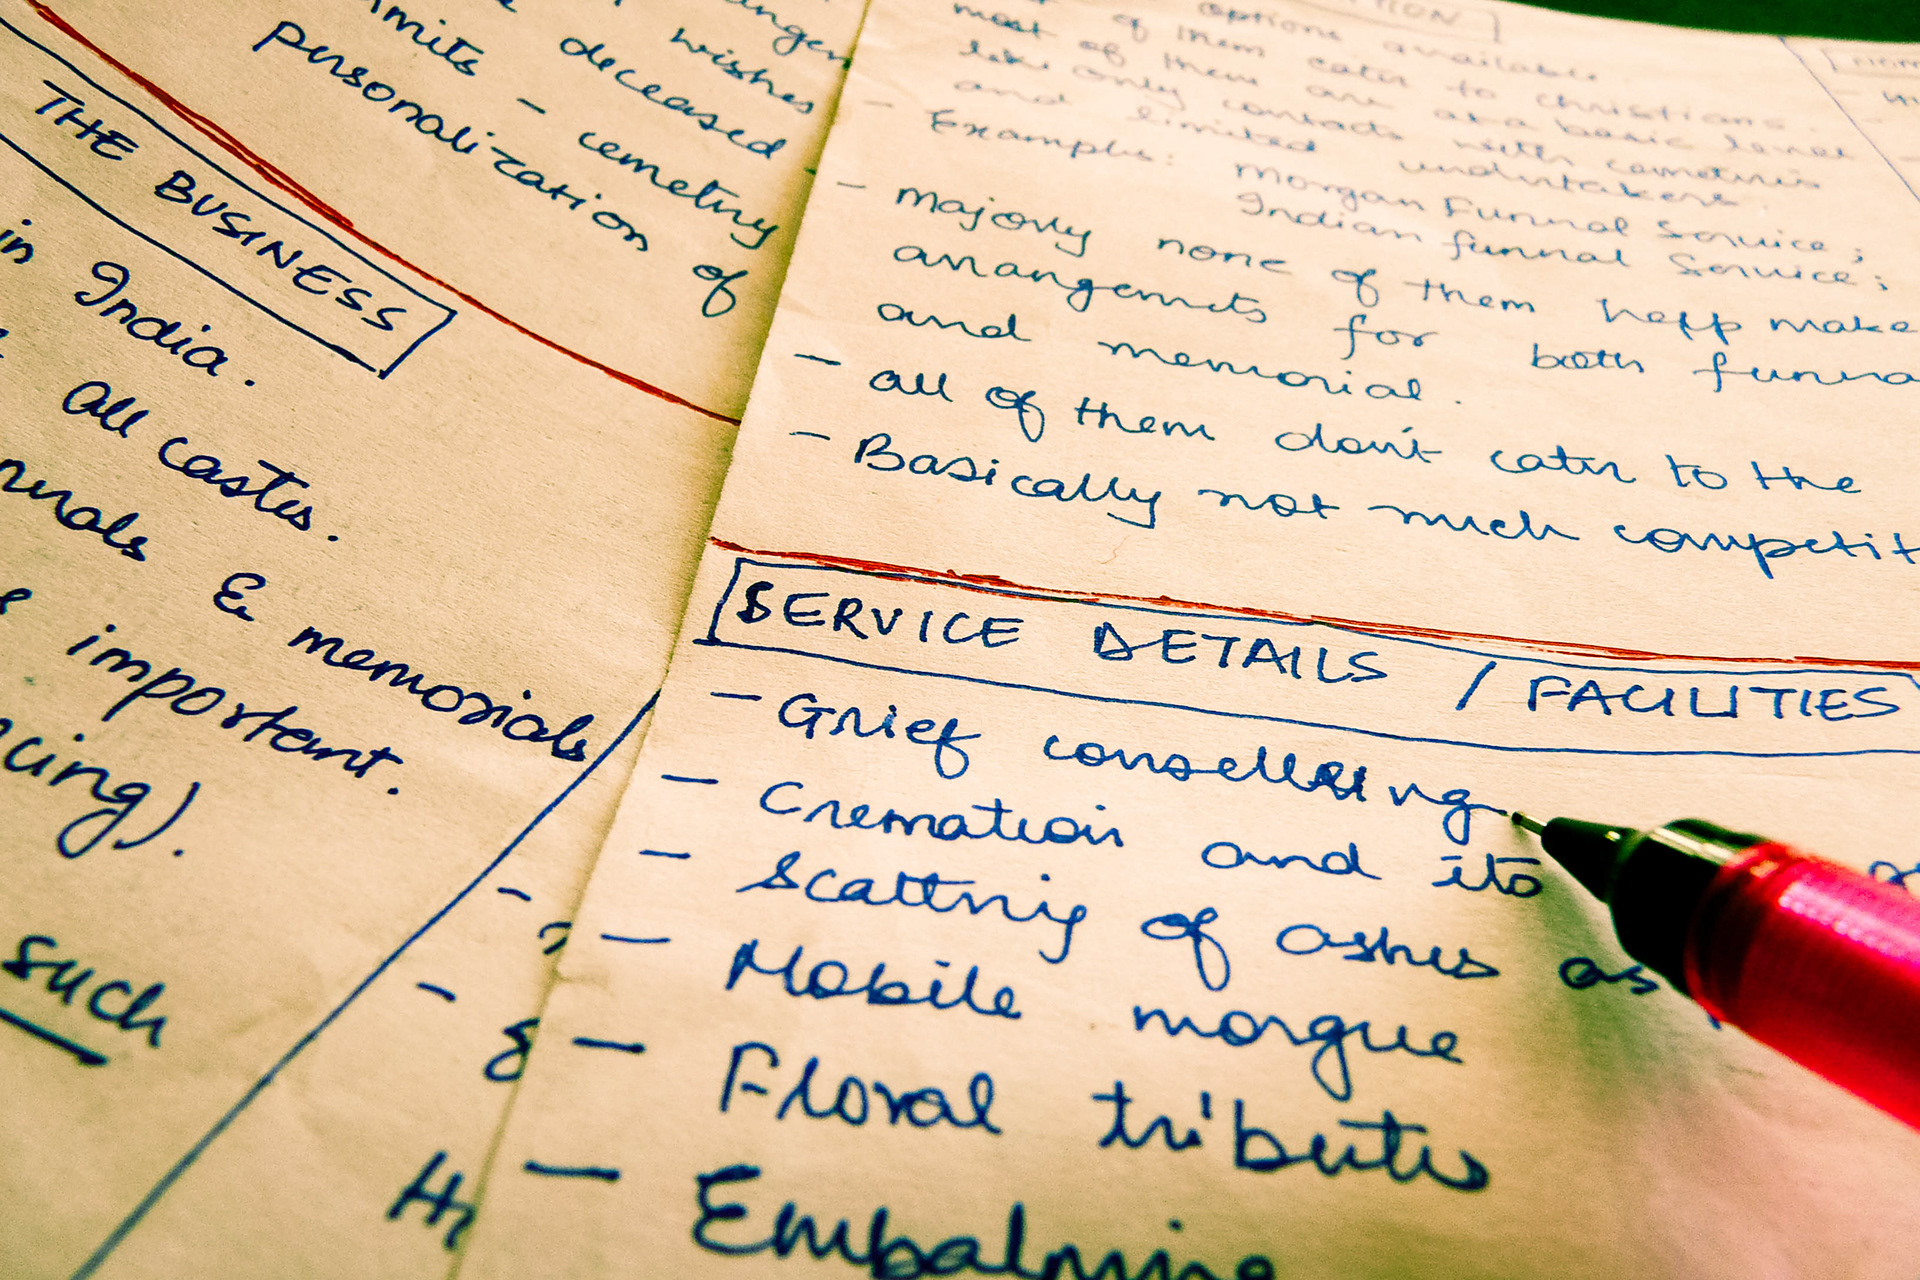 wishes
deceased
limits - cemetery
personalization of
THE BUSINESS
in India.
all castes.
& memorials
important.
such
options available.
most of them cater to christians.
most of them are at a basic level
like only contacts with cemeteries
and limited undertakers.
- Examples: Morgan Funeral Service;
Indian funeral Service;
- Majorly none of them help make
arrangements for both
and memorial.
- all of them don't cater to the
- Basically not much
SERVICE DETAILS / FACILITIES
- Grief conselling
- Cremation and its
- Scattering of ashes as
- Mobile morgue
- Floral tributes
- Embalming